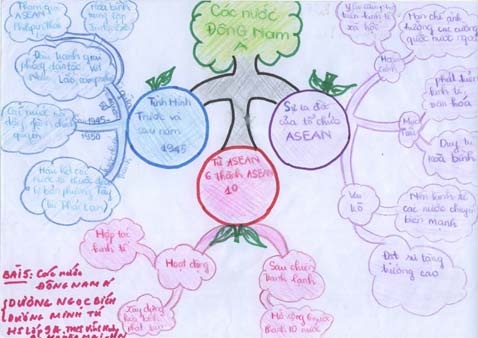 Các nước
ĐÔNG NAM
Á
Tình Hình
Trước và
sau năm
1945
Sự ra đời
của tổ chức
ASEAN
Từ ASEAN
6 Thành ASEAN
10
Tham gia
ASEAN
Hòa bình
trung lập
Đấu tranh giải
phóng dân tộc: Việt
Nam, Lào,
sau 1945-
1950
Hầu hết các
nước là thuộc địa
phương Tây
(trừ Thái Lan)
Yêu cầu phát
triển kinh tế
xã hội
Hoàn
cảnh
Hạn chế ảnh
hưởng các cường
quốc nước ngoài
Mục
tiêu
phát triển
kinh tế,
văn hóa
Duy trì
hòa bình
Vai
trò
Nền kinh tế
các nước chuyển
biến mạnh
Đạt sự tăng
trưởng cao
Hợp tác
kinh tế
Hoạt động
Xây dựng
hòa bình
Sau chiến
tranh lạnh
Mở rộng 6 nước
thành 10 nước
BÀI 5: Các nước
ĐÔNG NAM Á
DƯƠNG NGỌC
DƯƠNG MINH TÚ
HS Lớp 9A